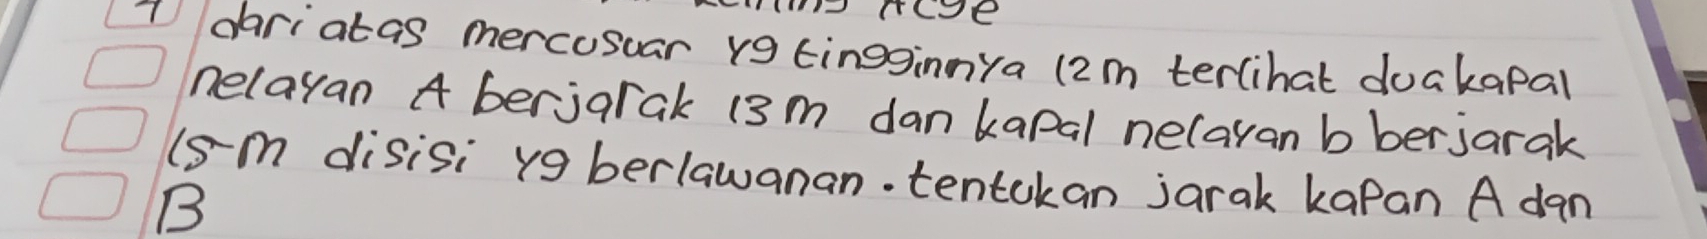 dari atas mercusuar yg tingginnya 12 m terlihat dua kapal
nelayan A berjarak 13 m dan kapal nelayan b berjarak
15 m disisi yg berlawanan. tentukan jarak kapan A dan
B